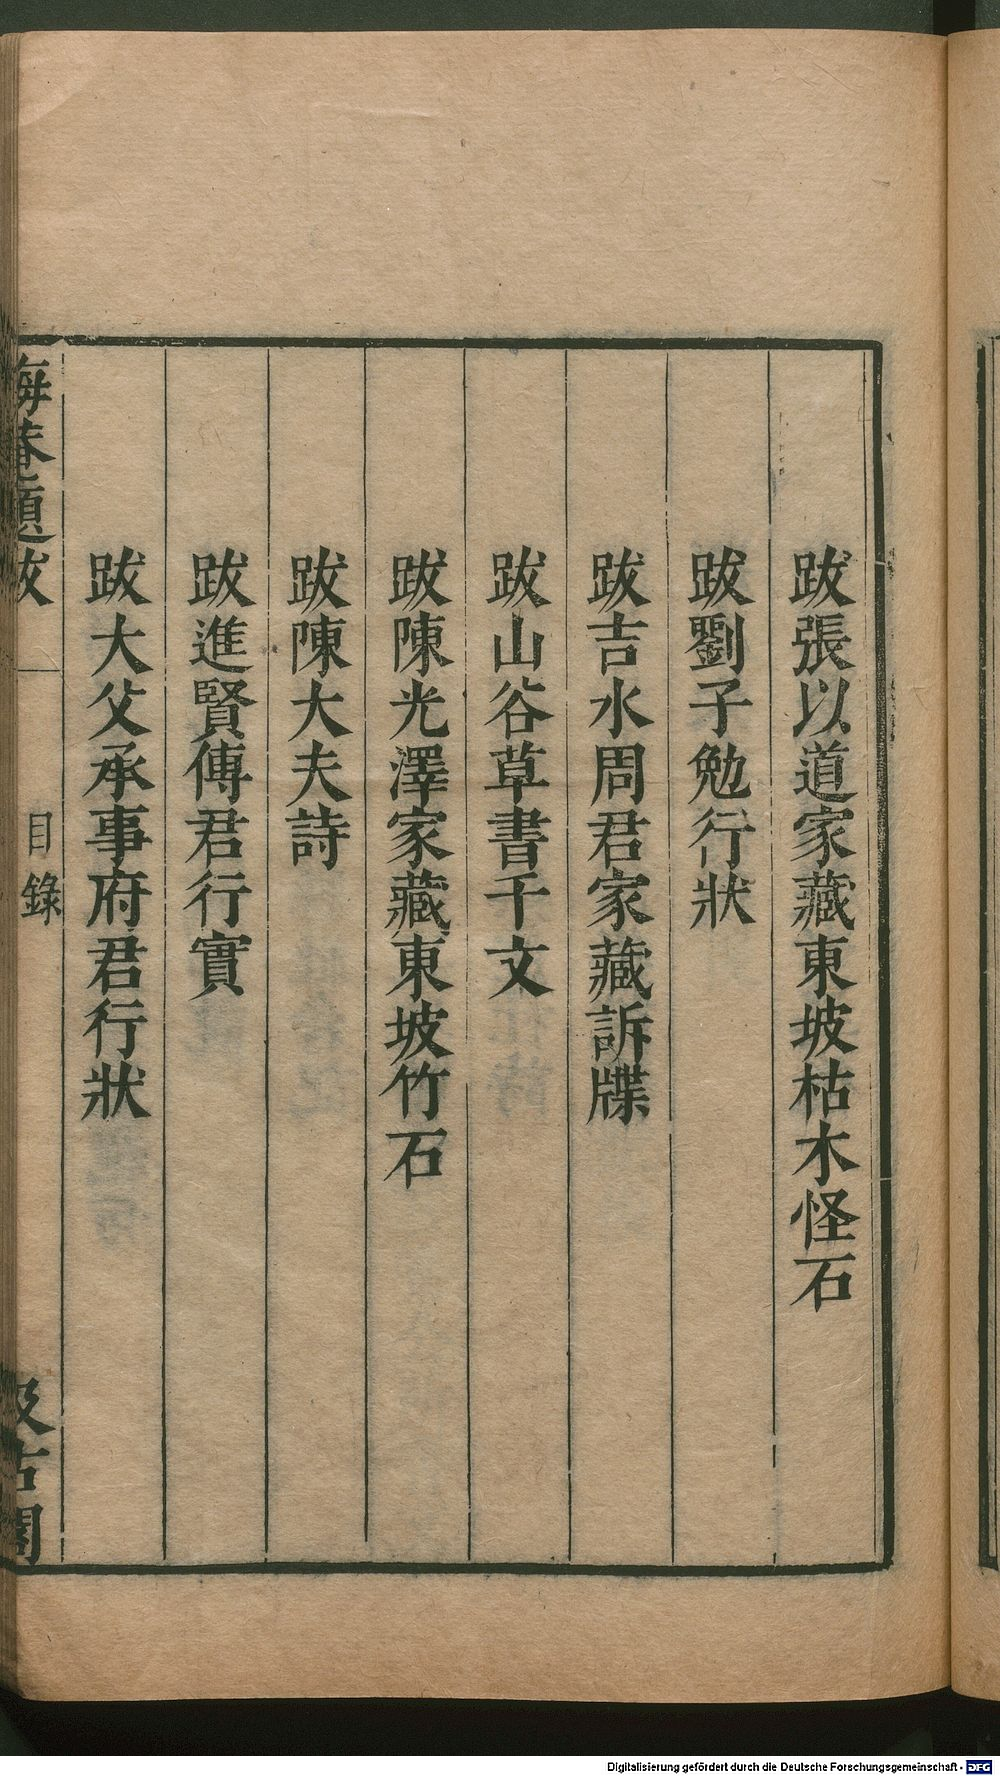 跋張以道家藏東坡枯木怪石
跋劉子勉行狀
跋吉水周君家藏訴牒
跋山谷草書千文
跋陳光澤家藏東坡竹石
跋陳大夫詩
跋進賢傅君行實
跋大父承事府君行狀
晦菴題跋 目錄 汲古閣
Digitalisierung gefördert durch die Deutsche Forschungsgemeinschaft - DFG